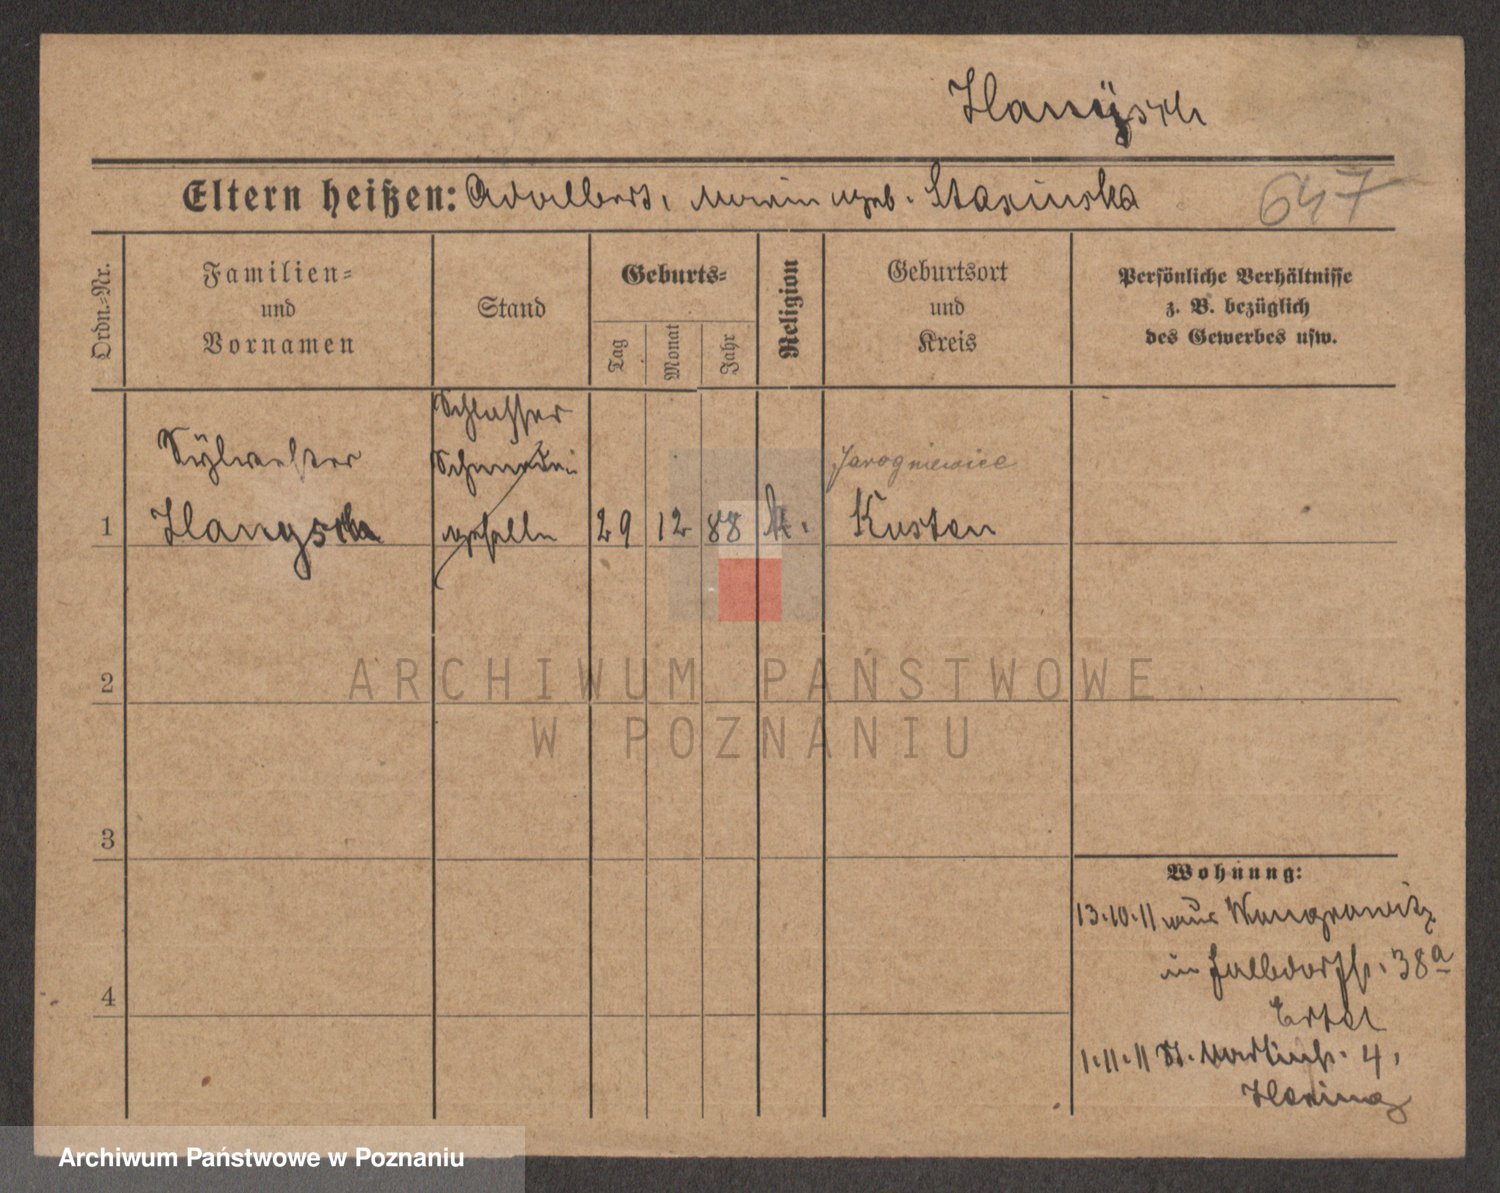 Eltern heißen: Adalbert, Maria geb. Stasinska
647
Ordn.-Nr.
Familien-
und
Vornamen
Stand
Geburts-
Tag
Monat
Jahr
Religion
Geburtsort
und
Kreis
Persönliche Verhältnisse
z. B. bezüglich
des Gewerbes usw.
Schlosser
Sylwester
Schmiede
Jarogniewice
1
geselle
29
12
88
k.
Kosten
2
ARCHIWUM PAŃSTWOWE
W POZNANIU
3
Wohnung:
13.10.11 aus Wongrowitz
in 38a
4
Ertel
1.11.11 St. Martinstr. 4,
Archiwum Państwowe w Poznaniu